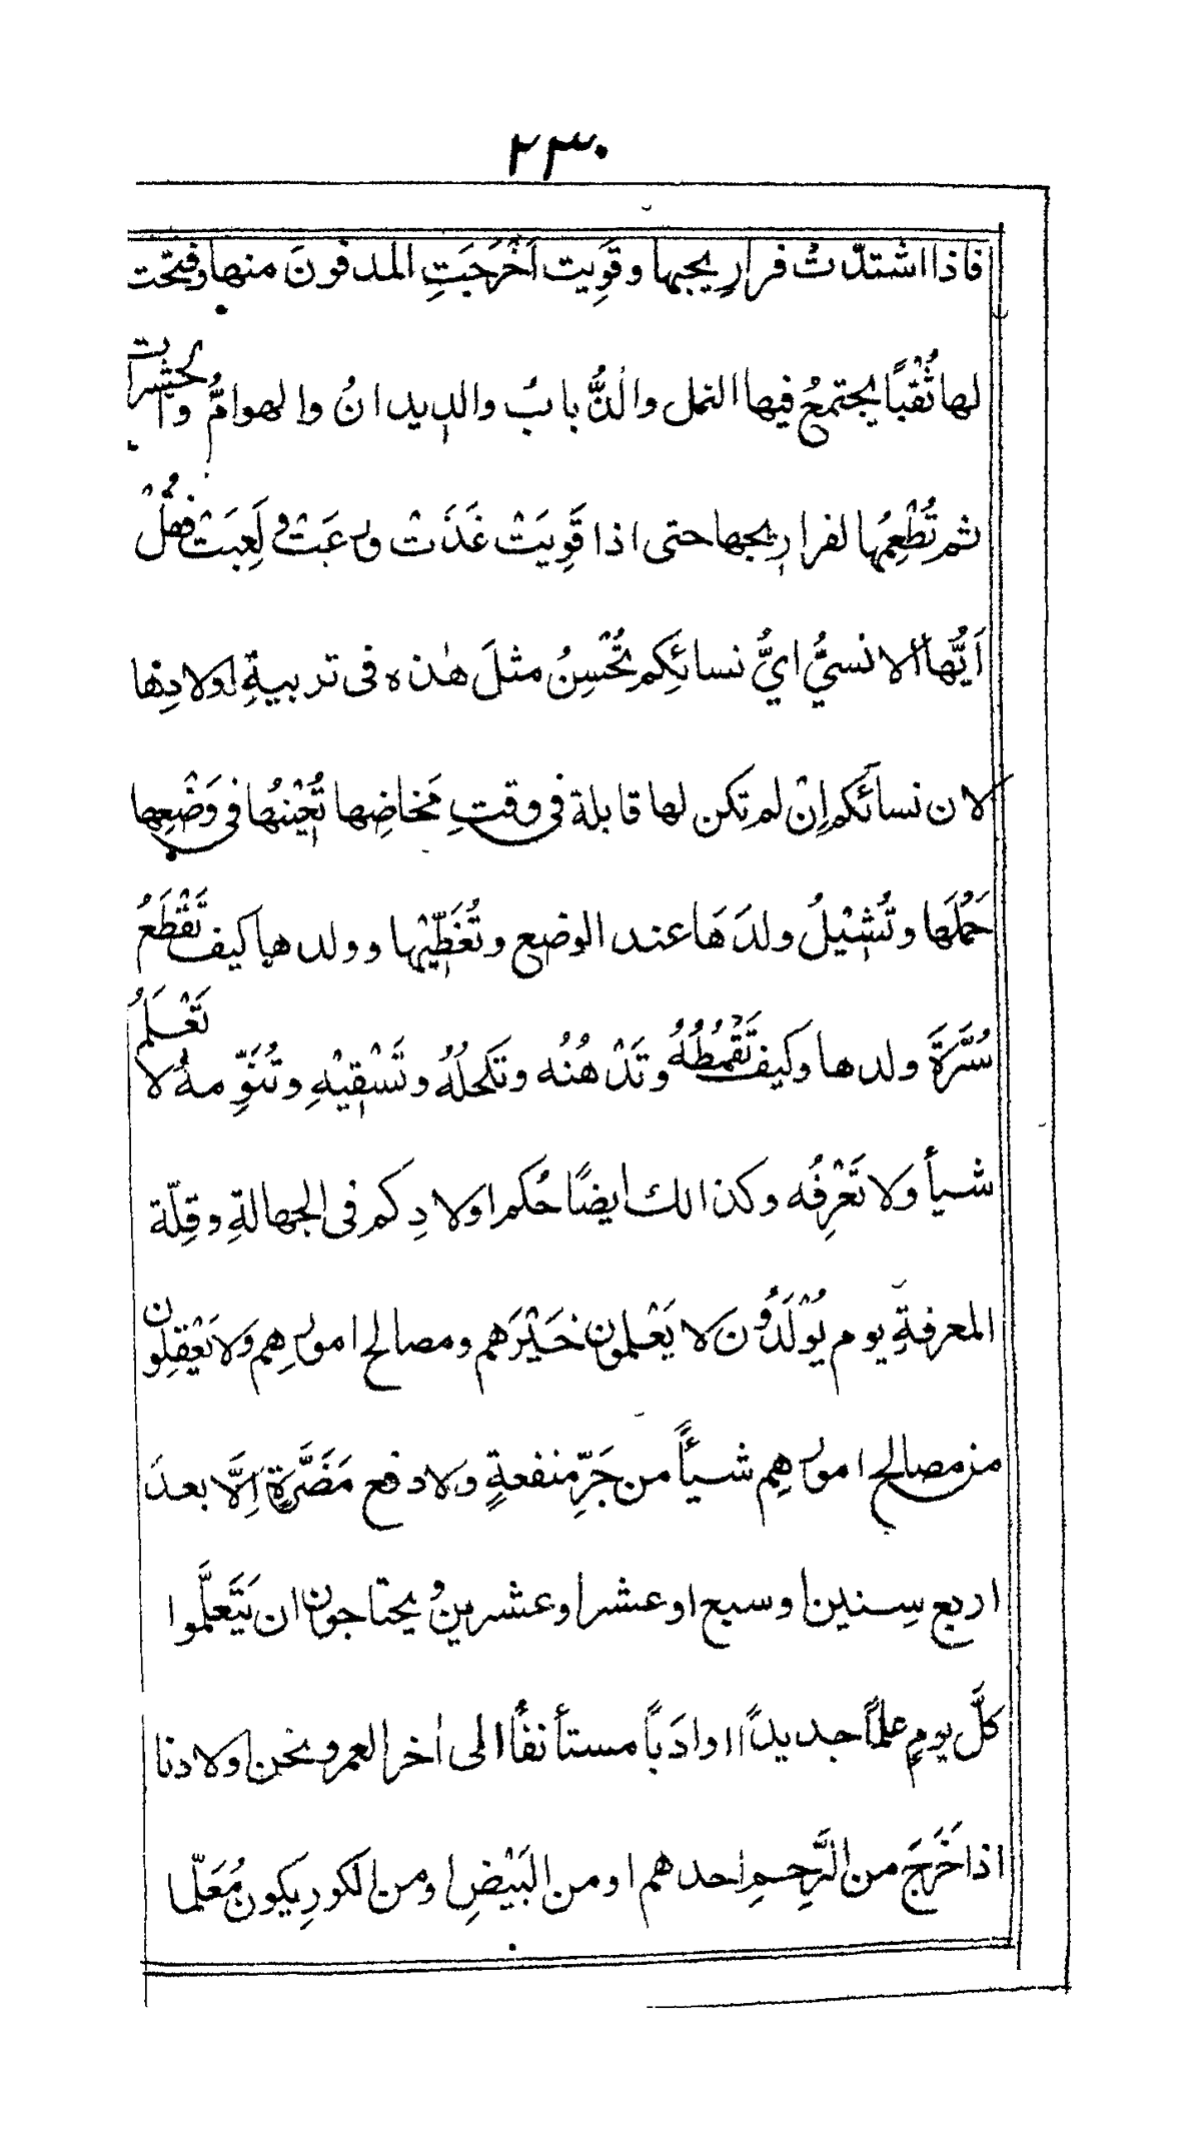 ٢٣٠
فاذا اشتدّت فراريجها وقَوِيت اَخْرَجَتِ المدفونَ منها وفتحت
لها ثُقْبًا يجتمعُ فيها النمل والذُّبابُ والديدانُ والهوامُّ والحشرات
ثم تُطْعِمُها لفراريجها حتى اذا قَوِيَتْ غَذَتْ ورعَتْ ولَعِبَتْ فقُلْ
اَيُّها الانسيُّ ايُّ نسائِكم تُحْسِنُ مثلَ هٰذه فى تربيةِ اولادِها
لان نسائَكم اِنْ لم تكن لها قابلة فى وقتِ مَخاضِها تُعِيْنُها فى وَضْعِها
حَمْلَها وتُشِيْلُ ولدَهَا عند الوضع وتُغَطِّيْها وولدها كيف تَقْطَعُ
سُرَّةَ ولدها وكيف تَقْمُطُهُ وتَدْهُنُه وتَكحلُهُ وتَسْقِيْهِ وتُنَوِّمهُ لا تَعْلَمُ
شيأً ولا تَعْرِفُه وكذالك ايضًا حُكم اولادِكم فى الجهالةِ وقِلّة
المعرفةِ يوم يُوْلَدُونَ لا يَعْلمون خَيْرَهم ومصالح امورِهم ولا يَعْقِلون
من مصالح امورهِم شيأً من جَرِّ منفعةٍ ولا دفع مَضَرَّةٍ اِلَّا بعدَ
اربع سِنين او سبع او عشر او عشرين ويحتاجون ان يَتَعلَّموا
كلَّ يومٍ علمًا جديدًا او ادَبًا مستأنفًا الى اٰخر العمر ونحن اولادنا
اذا خَرَجَ من الرَّحِمِ احدهم او من البَيْضِ او من الكورِ يكون مُعَلّما